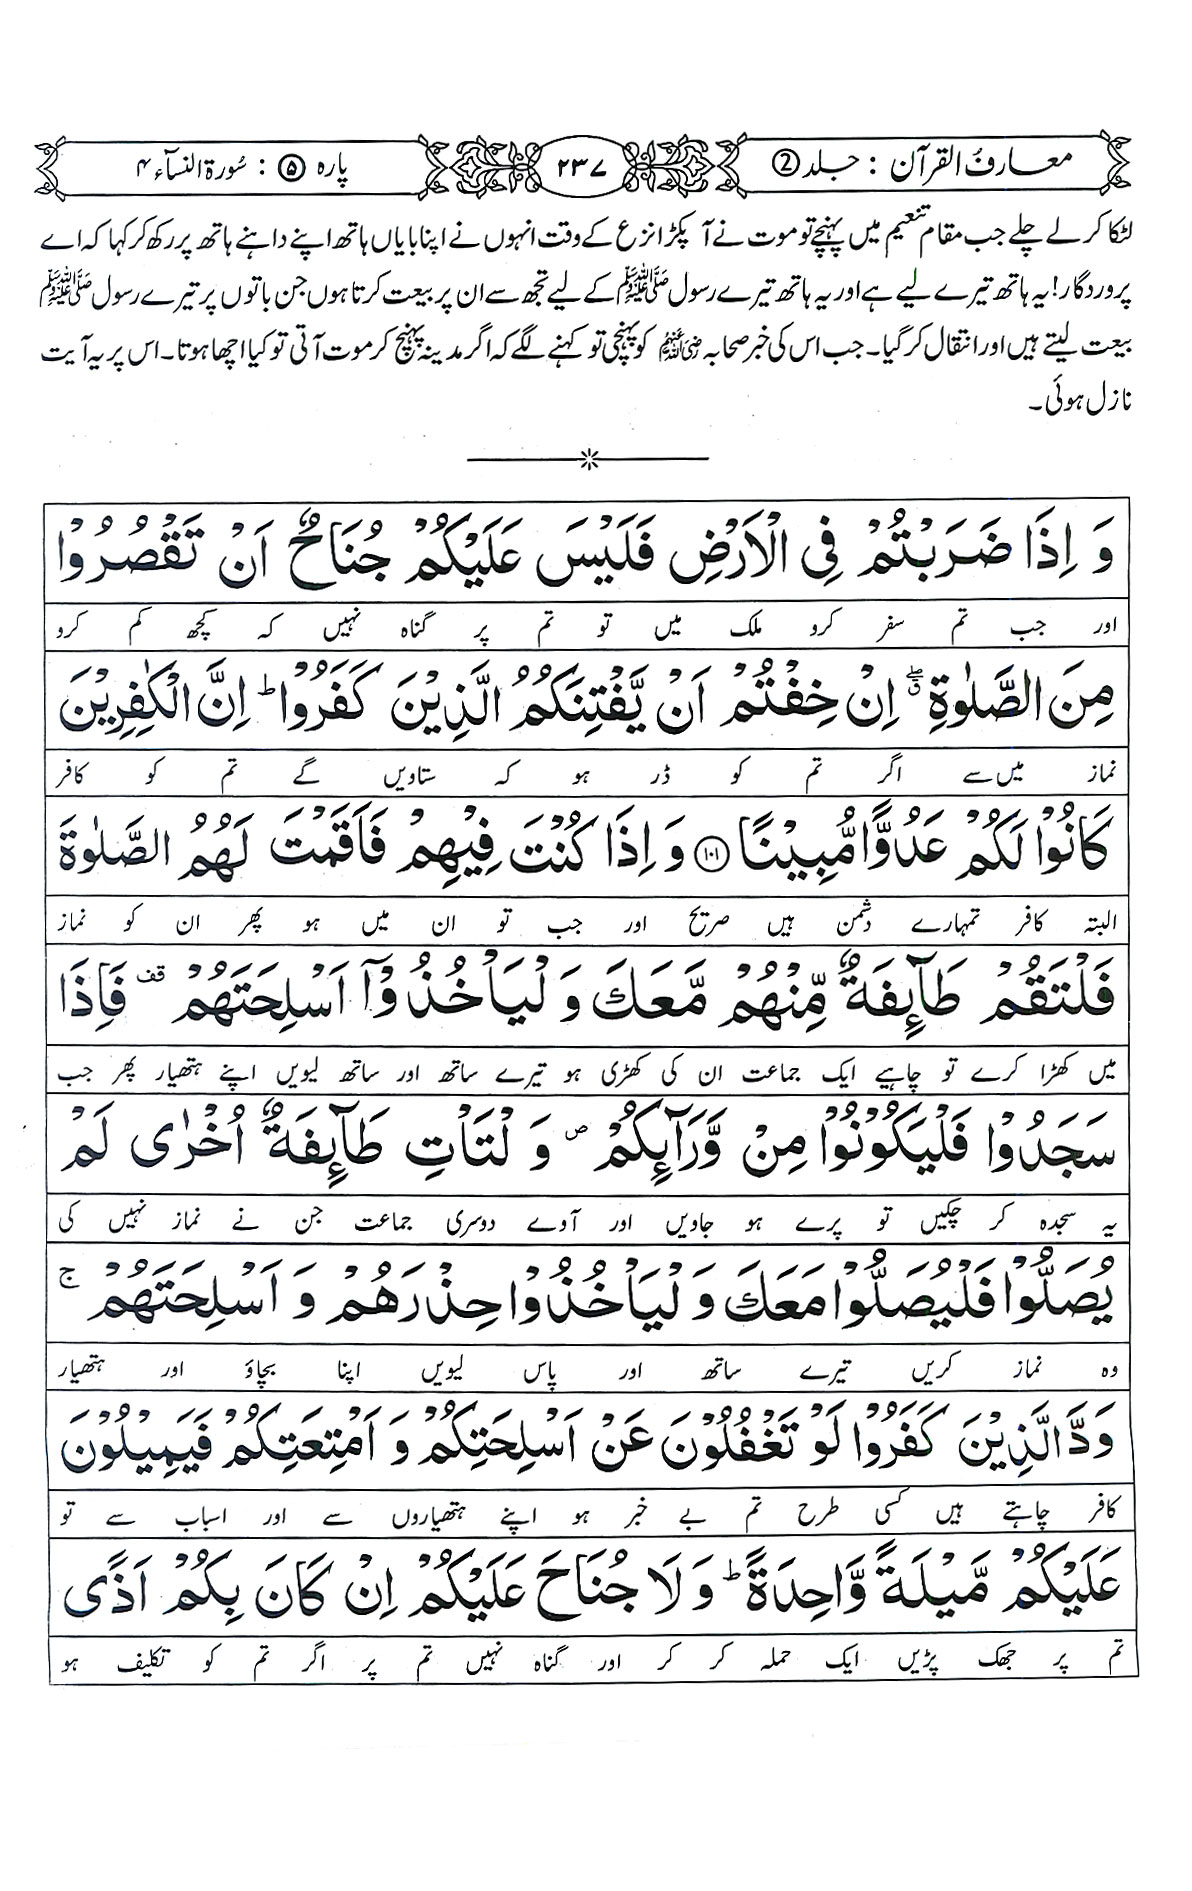 معارف القرآن : جلد ②
۲۳۷
پارہ ⑤ : سُورۃ النسآء ۴
لٹکا کر لے چلے جب مقام تنعیم میں پہنچے تو موت نے آ پکڑا نزع کے وقت انہوں نے اپنا بایاں ہاتھ اپنے داہنے ہاتھ پر رکھ کر کہا کہ اے
پروردگار! یہ ہاتھ تیرے لیے ہے اور یہ ہاتھ تیرے رسول ﷺ کے لیے تجھ سے ان پر بیعت کرتا ہوں جن باتوں پر تیرے رسول ﷺ
بیعت لیتے ہیں اور انتقال کر گیا۔ جب اس کی خبر صحابہ رضی اللہ عنہم کو پہنچی تو کہنے لگے کہ اگر مدینہ پہنچ کر موت آتی تو کیا اچھا ہوتا۔ اس پر یہ آیت
نازل ہوئی۔
وَ اِذَا ضَرَبْتُمْ فِي الْاَرْضِ فَلَيْسَ عَلَيْكُمْ جُنَاحٌ اَنْ تَقْصُرُوْا
اور جب تم سفر کرو ملک میں تو تم پر گناہ نہیں کہ کچھ کم کرو
مِنَ الصَّلٰوةِ ۖ ق اِنْ خِفْتُمْ اَنْ يَّفْتِنَكُمُ الَّذِيْنَ كَفَرُوْا ؕ اِنَّ الْكٰفِرِيْنَ
نماز میں سے اگر تم کو ڈر ہو کہ ستاویں گے تم کو کافر
كَانُوْا لَكُمْ عَدُوًّا مُّبِيْنًا ۝۱۰۱ وَ اِذَا كُنْتَ فِيْهِمْ فَاَقَمْتَ لَهُمُ الصَّلٰوةَ
البتہ کافر تمہارے دشمن ہیں صریح اور جب تو ان میں ہو پھر ان کو نماز
فَلْتَقُمْ طَآىِٕفَةٌ مِّنْهُمْ مَّعَكَ وَ لْيَاْخُذُوْۤا اَسْلِحَتَهُمْ قف فَاِذَا
میں کھڑا کرے تو چاہیے ایک جماعت ان کی کھڑی ہو تیرے ساتھ اور ساتھ لیویں اپنے ہتھیار پھر جب
سَجَدُوْا فَلْيَكُوْنُوْا مِنْ وَّرَآىِٕكُمْ ص وَ لْتَاْتِ طَآىِٕفَةٌ اُخْرٰى لَمْ
یہ سجدہ کر چکیں تو پرے ہو جاویں اور آوے دوسری جماعت جن نے نماز نہیں کی
يُصَلُّوْا فَلْيُصَلُّوْا مَعَكَ وَ لْيَاْخُذُوْا حِذْرَهُمْ وَ اَسْلِحَتَهُمْ ج
وہ نماز کریں تیرے ساتھ اور پاس لیویں اپنا بچاؤ اور ہتھیار
وَدَّ الَّذِيْنَ كَفَرُوْا لَوْ تَغْفُلُوْنَ عَنْ اَسْلِحَتِكُمْ وَ اَمْتِعَتِكُمْ فَيَمِيْلُوْنَ
کافر چاہتے ہیں کسی طرح تم بے خبر ہو اپنے ہتھیاروں سے اور اسباب سے تو
عَلَيْكُمْ مَّيْلَةً وَّاحِدَةً ؕ وَ لَا جُنَاحَ عَلَيْكُمْ اِنْ كَانَ بِكُمْ اَذًى
تم پر جھک پڑیں ایک حملہ کر کر اور گناہ نہیں تم پر اگر تم کو تکلیف ہو